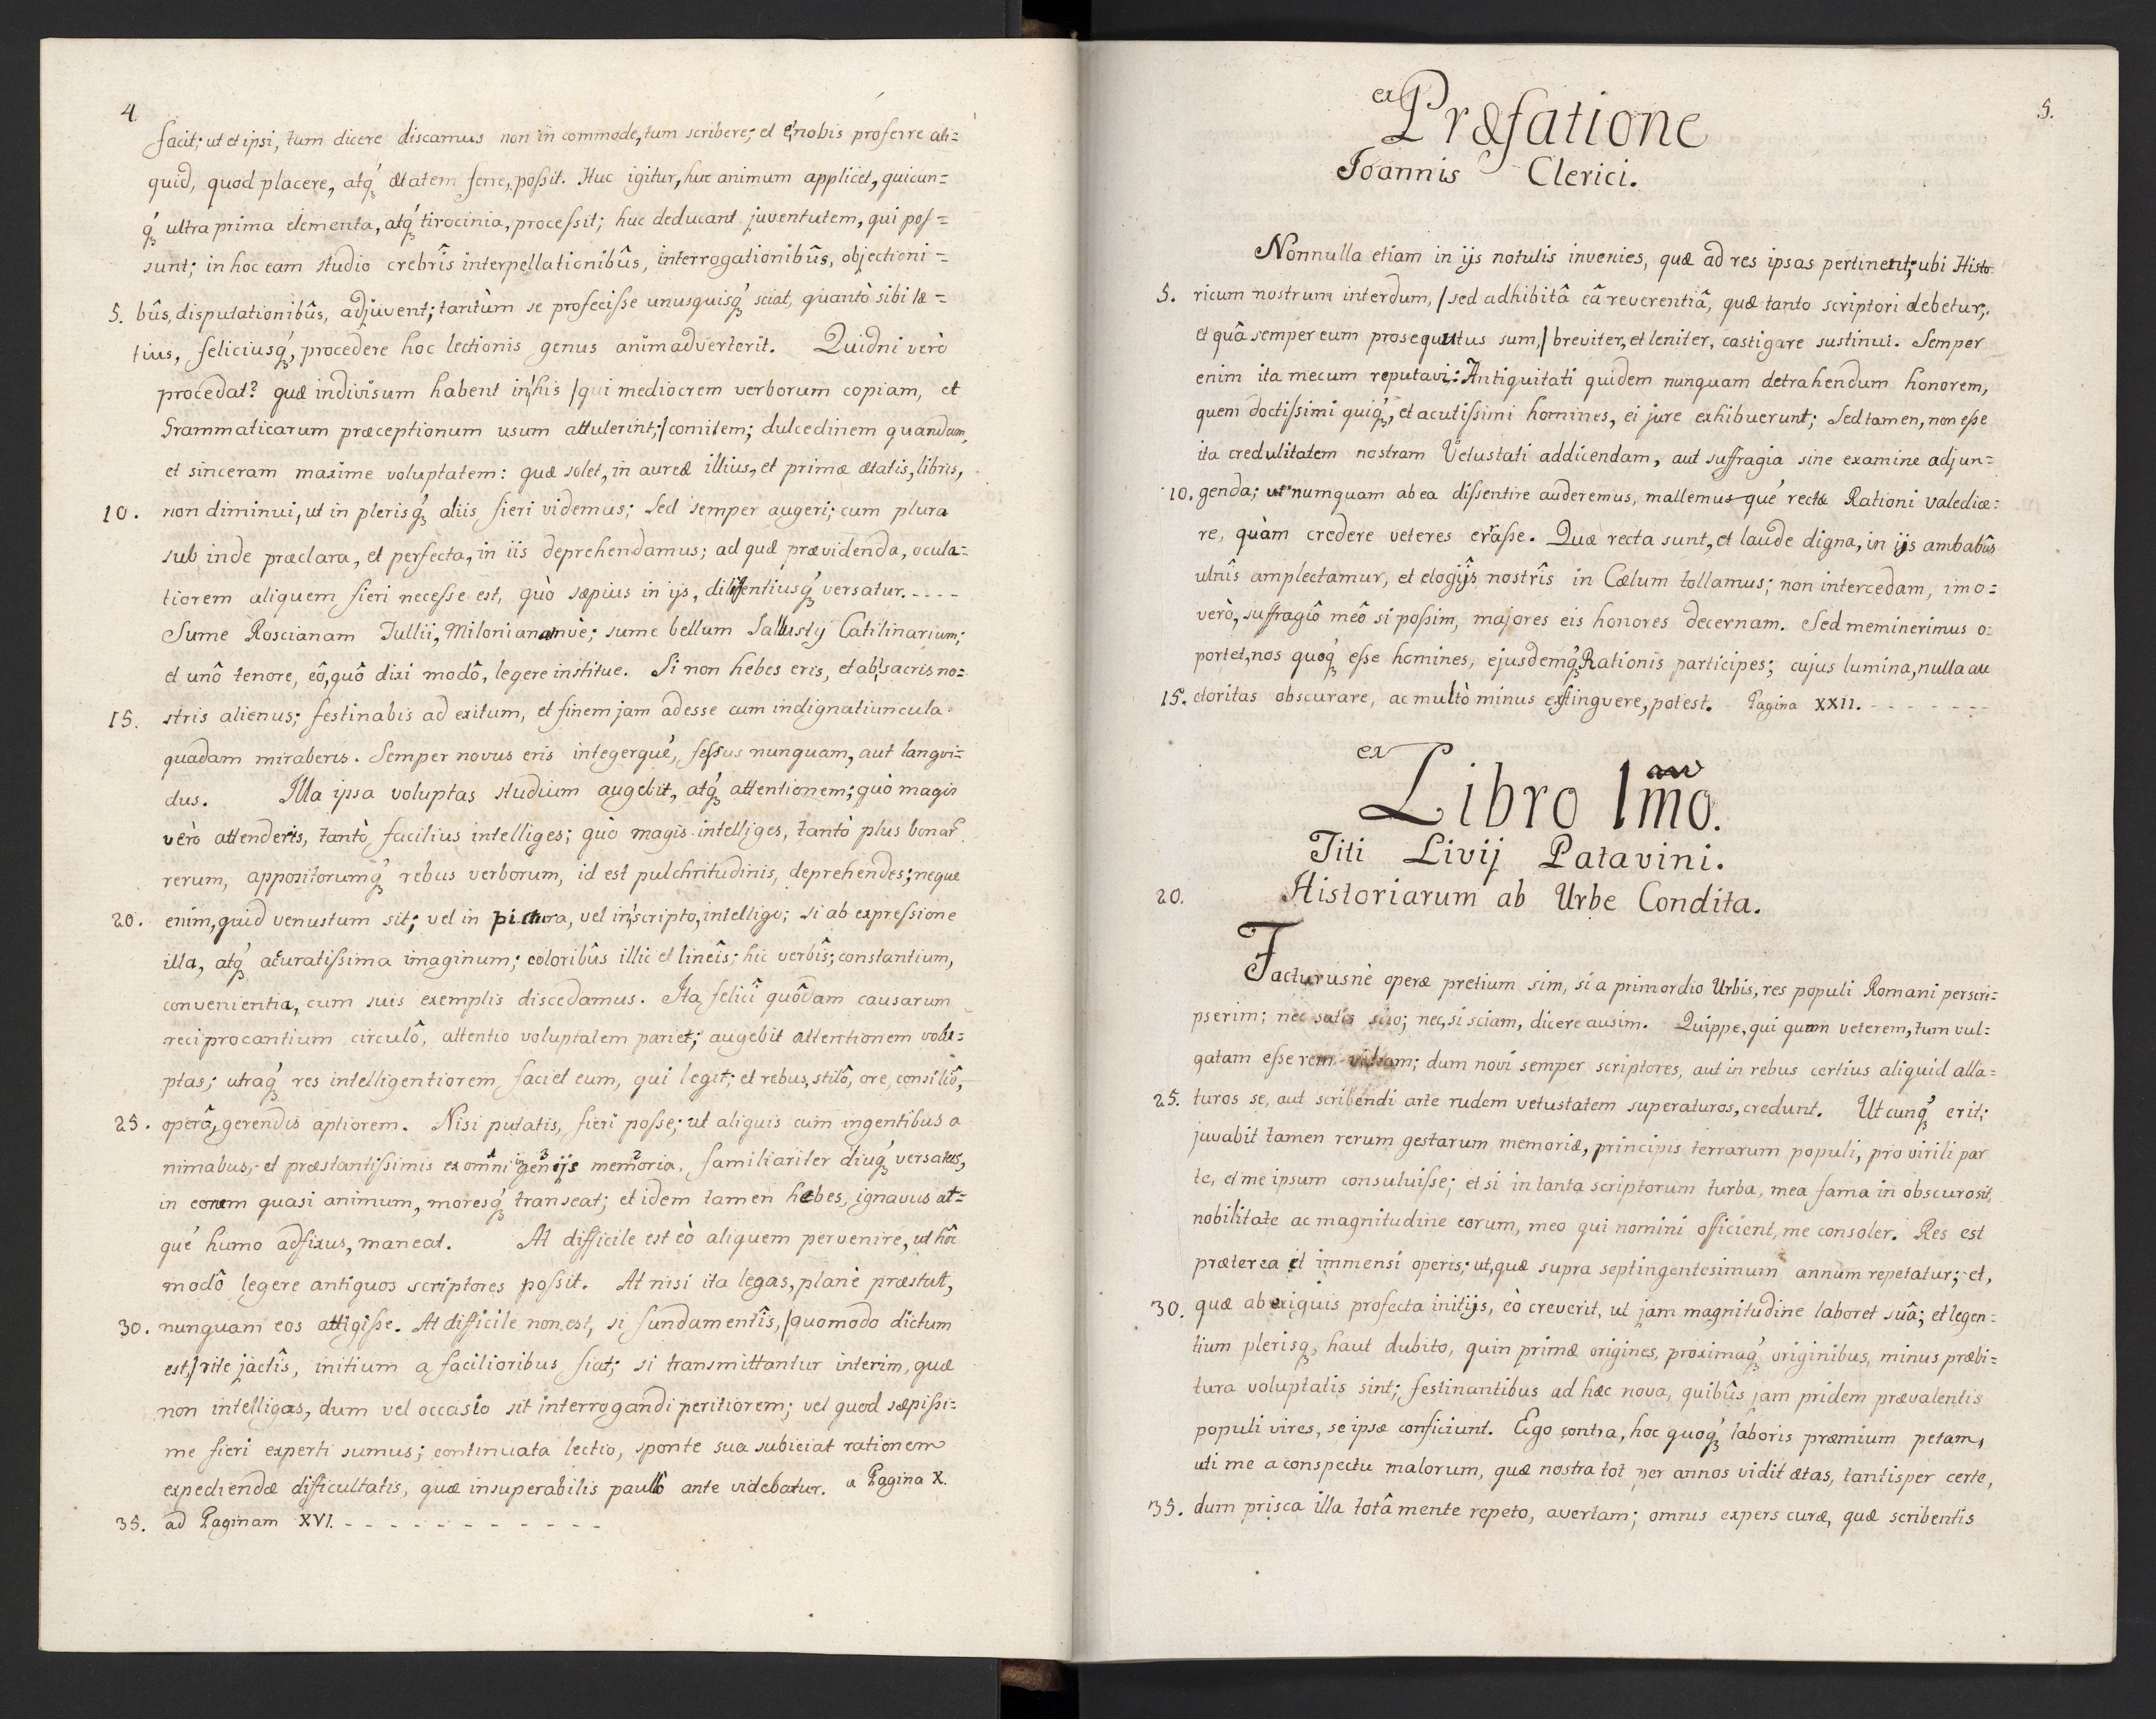 4.
facit; ut et ipsi, tum dicere discamus non in commode, tum scribere; et e nobis proferre ali=
quid, quod placere, atq́ꝫ ætatem ferre, poſsit. Huc igitur, huc animum applicet, quicun=
q́ꝫ ultra prima elementa, atq́ꝫ tirocinia, proceſsit; huc deducant juventutem, qui poſ=
sunt; in hoc eam studio crebrîs interpellationibûs, interrogationibûs, objectioni=
5. bûs, disputationibûs, adjuvent; tantùm se profeciſse unusquisq́ꝫ sciat, quantò sibi læ=
tius, feliciusq́ꝫ, procedere hoc lectionis genus animadverterit. Quidni verò
procedat? quæ indivisum habent in his /qui mediocrem verborum copiam, et
Grammaticarum præceptionum usum attulerint;/ comitem; dulcedinem quandam,
et sinceram maxime voluptatem: quæ solet, in aureæ illius, et primæ ætatis, libris,
10. non diminui, ut in plerisq́ꝫ aliis fieri videmus; sed semper augeri; cum plura
sub inde præclara, et perfecta, in iis deprehendamus; ad quæ prævidenda, ocula=
tiorem aliquem fieri neceſse est, quò sæpius in ijs, diligentiusq́ꝫ versatur. - - - -
Sume Roscianam Tullii, Milonianamve; sume bellum Sallustij Catilinarium;
et unô tenore, eô, quô dixi modô, legere institue. Si non hebes eris, et ab sacris no=
15. stris alienus; festinabis ad exitum, et finem jam adesse cum indignatiuncula
quadam miraberis. Semper novus eris integerqué, feſsus nunquam, aut langvi=
dus. Illa ipsa voluptas studium augebit, atq́ꝫ attentionem; quò magis
verò attenderis, tantò facilius intelliges; quò magis intelliges, tantò plus bonar̃
rerum, appositorumq́ꝫ rebus verborum, id est pulchritudinis, deprehendes; neque
20. enim, quid venustum sit; vel in pictura, vel in scripto, intelligo; si ab expreſsione
illa, atq́ꝫ acuratiſsima imaginum; coloribûs illic et lineîs; hic verbîs; constantium,
convenientia, cum suis exemplis discedamus. Ita, felicî quôdam causarum
reciprocantium circulô, attentio voluptatem pariet; augebit attentionem volu=
ptas; utraq́ꝫ res intelligentiorem faciet eum, qui legit; et rebus, stilô, ore, consiliô,
25. operâ, gerendis aptiorem. Nisi putatis, fieri poſse; ut aliquis cum ingentibus a
nimabus, et præstantiſsimis ex omni ingenijs memoria, familiariter diuq́ꝫ versatus,
in eorum quasi animum, moresq́ꝫ transeat; et idem tamen hebes, ignavus at=
qué humo adfixus, maneat. At difficile est eò aliquem pervenire, ut hôc
modô legere antiquos scriptores poſsit. At nisi ita legas, planè præstat,
30. nunquam eos attigiſse. At difficile non est, si fundamentîs, /quomodo dictum
est,/ rite jactîs, initium a facilioribus fiat; si transmittantur interim, quæ
non intelligas, dum vel occasio sit interrogandi peritiorem; vel quod sæpiſsi=
me fieri experti sumus; continuata lectio, sponte sua subiciat rationem
expediendæ difficultatis, quæ insuperabilis paullò ante videbatur. a Pagina X.
35. ad Paginam XVI. - - - - - - - - - - - -
5.
ex Præfatione
Joannis Clerici.
Nonnulla etiam in ijs notulis invenies, quæ ad res ipsas pertinent; ubi Histo-
5. ricum nostrum interdum, /sed adhibitâ eâ reverentiâ, quæ tanto scriptori debetur,
et quâ semper eum prosequutus sum,/ breviter, et leniter, castigare sustinui. Semper
enim ita mecum reputavi: Antiquitati quidem nunquam detrahendum honorem,
quem doctiſsimi quiq́ꝫ, et acutiſsimi homines, ei jure exhibuerunt; Sed tamen, non eſse
ita credulitatem nostram Vetustati addicendam, aut suffragia sine examine adjun=
10. genda; ut numquam ab ea diſsentire auderemus, mallemus qué rectæ Rationi valedice=
re, quàm credere veteres eraſse. Quæ recta sunt, et laude digna, in ijs ambabûs
ulnîs amplectamur, et elogijs nostrîs in Cælum tollamus; non intercedam, imo=
verò, suffragiô meô si poſsim, majores eis honores decernam. Sed meminerimus o=
portet, nos quoq́ꝫ eſse homines, ejusdemq́ꝫ Rationis participes; cujus lumina, nulla au
15. ctoritas obscurare, ac multò minus exstingvere, potest. Pagina XXII. - - - - - - -
ex Libro 1mo.
Titi Livij Patavini.
20. Historiarum ab Urbe Condita.
Facturusnè operæ pretium sim, si a primordio Urbis, res populi Romani perscri=
pserim; nec satis scio; nec, si sciam, dicere ausim. Quippe, qui quum veterem, tum vul=
gatam eſse rem videam; dum novi semper scriptores, aut in rebus certius aliquid alla=
25. turos se, aut scribendi arte rudem vetustatem superaturos, credunt. Ut cunq́ꝫ erit;
juvabit tamen rerum gestarum memoriæ, principis terrarum populi, pro virili par
te, et me ipsum consuluiſse; et si in tanta scriptorum turba, mea fama in obscuro sit,
nobilitate ac magnitudine eorum, meo qui nomini officient, me consoler. Res est
præterea et immensi operis; ut, quæ supra septingentesimum annum repetatur; et,
30. quæ ab exiguis profecta initijs, eò creverit, ut jam magnitudine laboret suâ; et legen=
tium plerisq́ꝫ, haut dubito, quin primæ origines, proximaq́ꝫ originibus, minus præbi=
tura voluptatis sint; festinantibus ad hæc nova, quibûs jam pridem prævalentis
populi vires, se ipsæ conficiunt. Ego contra, hoc quoq́ꝫ laboris præmium petam,
uti me a conspectu malorum, quæ nostra tot per annos vidit ætas, tantisper certe,
35. dum prisca illa totâ mente repeto, avertam; omnis expers curæ, quæ scribentis